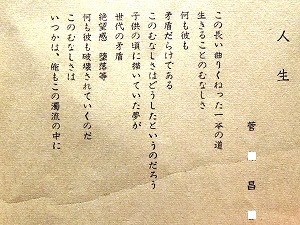 人生
菅■昌■
この長い曲りくねった一本の道
生きることのむなしさ
何も彼も
矛盾だらけである
このむなしさはどうしたというのだろう
子供の頃に描いていた夢が
世代の矛盾
絶望感 堕落等
何も彼も破壊されていくのだ
このむなしさは
いつかは、俺もこの濁流の中に